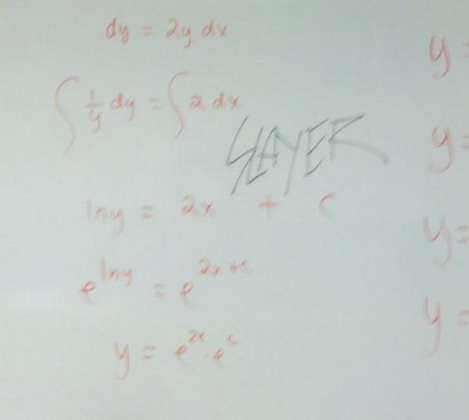 dy = 2y dx
∫ 1/y dy = ∫ 2 dx
SLAYER
ln y = 2x + c
e^{ln y} = e^{2x+c}
y = e^{2x} · e^c
y =
y =
y =
y =